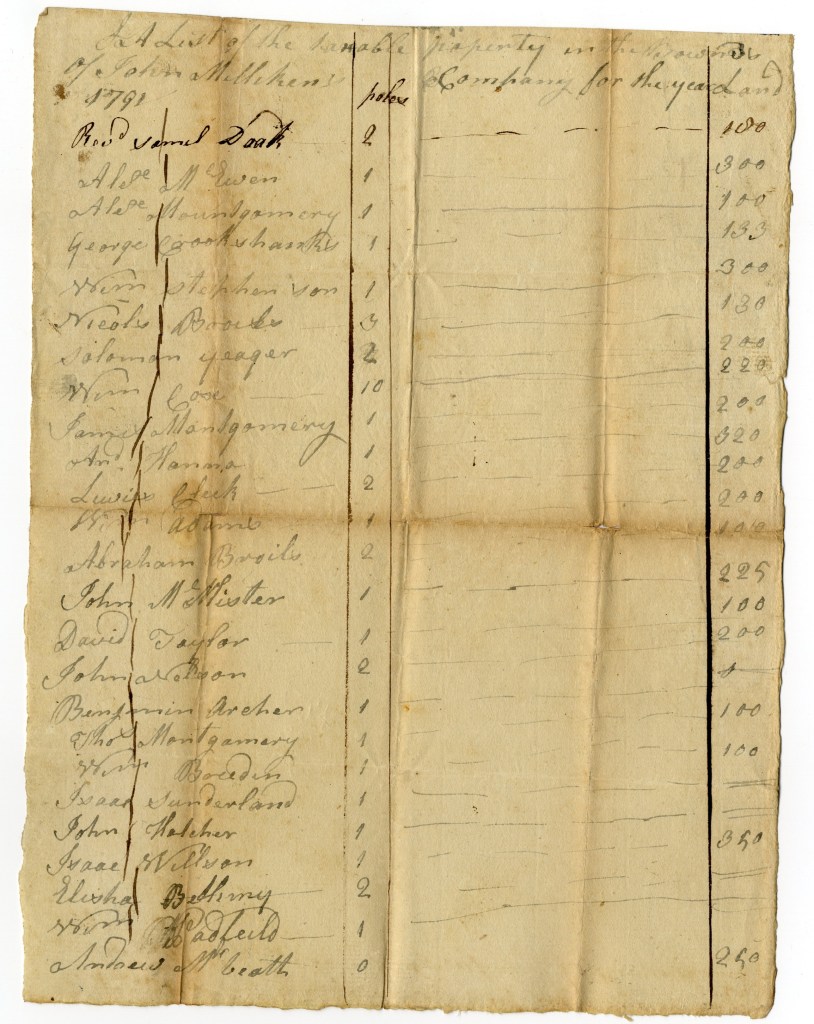 A List of the taxable property in the Bownds
of John Millikens Company for the year
1791 poles Land
Revd Samel Doak 2 180
Alxe Mc Ewen 1 300
Alxe Mountgomery 1 100
George Crookshanks 1 133
Wim Stephen son 1 300
Nicols Broiles 3 130
Solomon Yeager 2 200
220
Wim Coxe 10 200
James Montgomery 1 320
And Hanna 1 200
Lewis Cleek 2 200
Wim Adams 1 100
Abraham Broils 2 225
John Mc Allister 1 100
David Taylor 1 200
John Nelson 2
Benjmin Archer 1 100
Thos Montgomery 1 100
Wim Breeden 1
Isaac Sunderland 1
John Hatcher 1 350
Isaac Willson 1
Elisha Bethiny 2
Wim 1
Andrew Mc beath 0 250